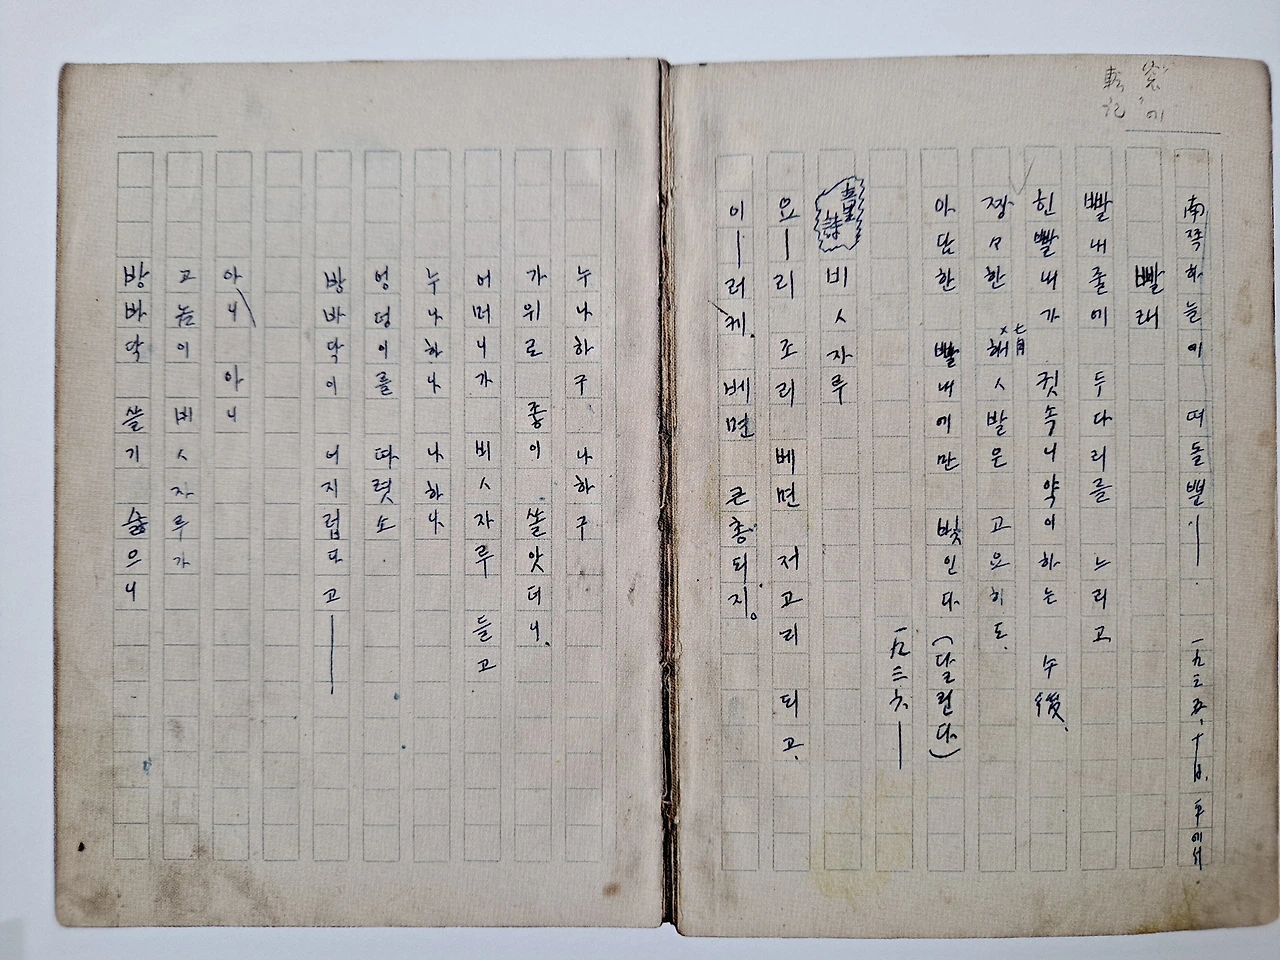 "窓"에
転記
南쪽하늘에 떠돌뿐——. 一九三五、十月. 平에서
빨래
빨내줄에 두다리를 느리고
힌빨내가 귓속니약이하는 午後、
쨩々한 七月 해ㅅ발은 고요히도、
아담한 빨내에만 빛인다. (달린다)
一九三六——
童詩 비ㅅ자루
요—리 조리 베면 저고리 되고、
이—러케、 베면 큰총되지。
누나하구 나하구
가위로 종이 쏠앗더니、
어머니가 비ㅅ자루 들고
누나하나 나하나
엉덩이를 따렷소
방바닥이 어지럽다고——
아니 아니
고놈이 비ㅅ자루가
방바닥 쓸기 슳으니